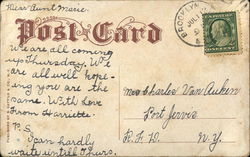 Dear Aunt Marie.
Post Card
We are all coming
up Thursday. We
are all well hope-
ing you are the
same. With love
From Harriette.
P.S.
I can hardly
wait until Thurs.
BROOKLYN
JUL
Mrs Charlie Van Auken
Port Jervis
R.F.D. N.Y.